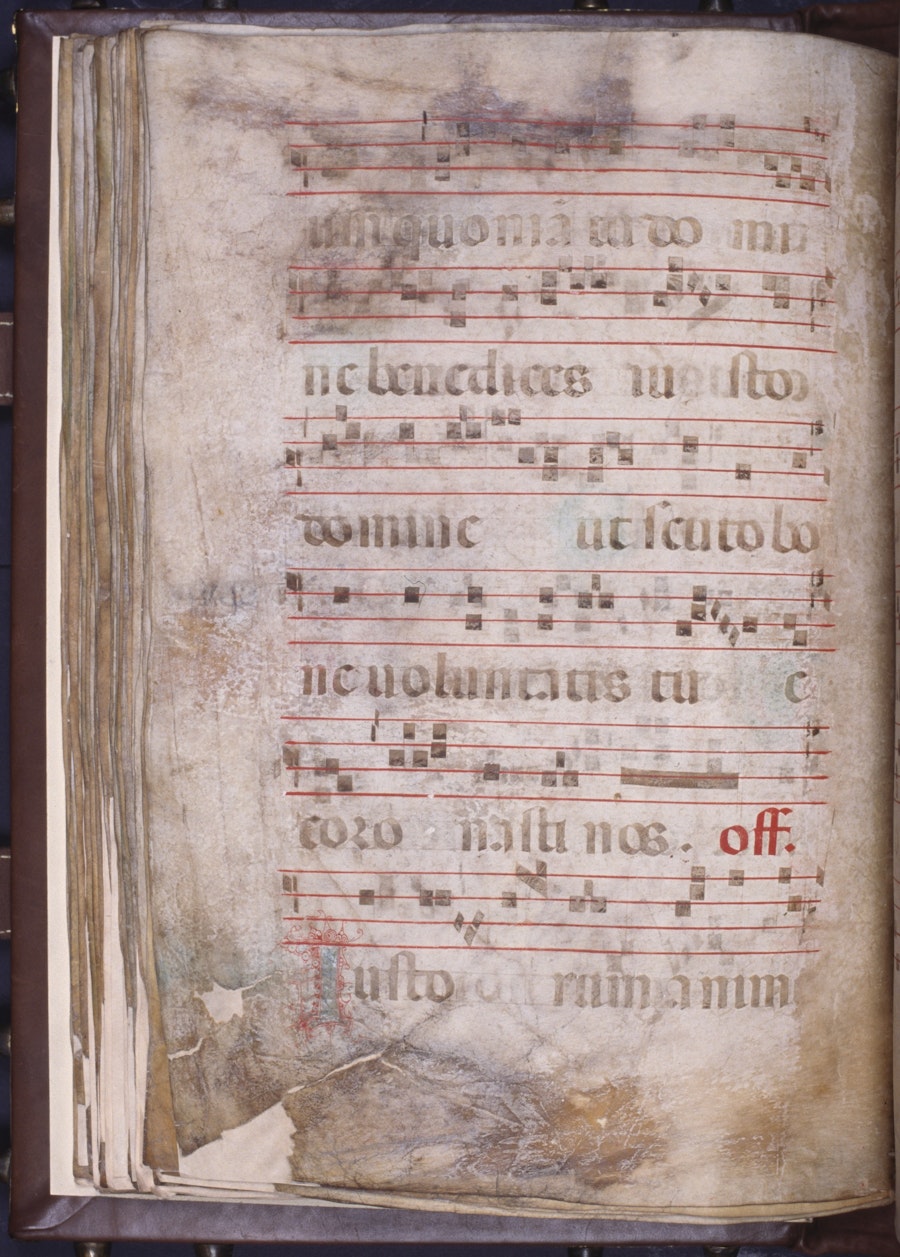 quoniā tu do mi
ne benedices iusto
domine ut scuto bo
ne voluntatis tu e
coro nasti nos. off.
Iusto rum anim